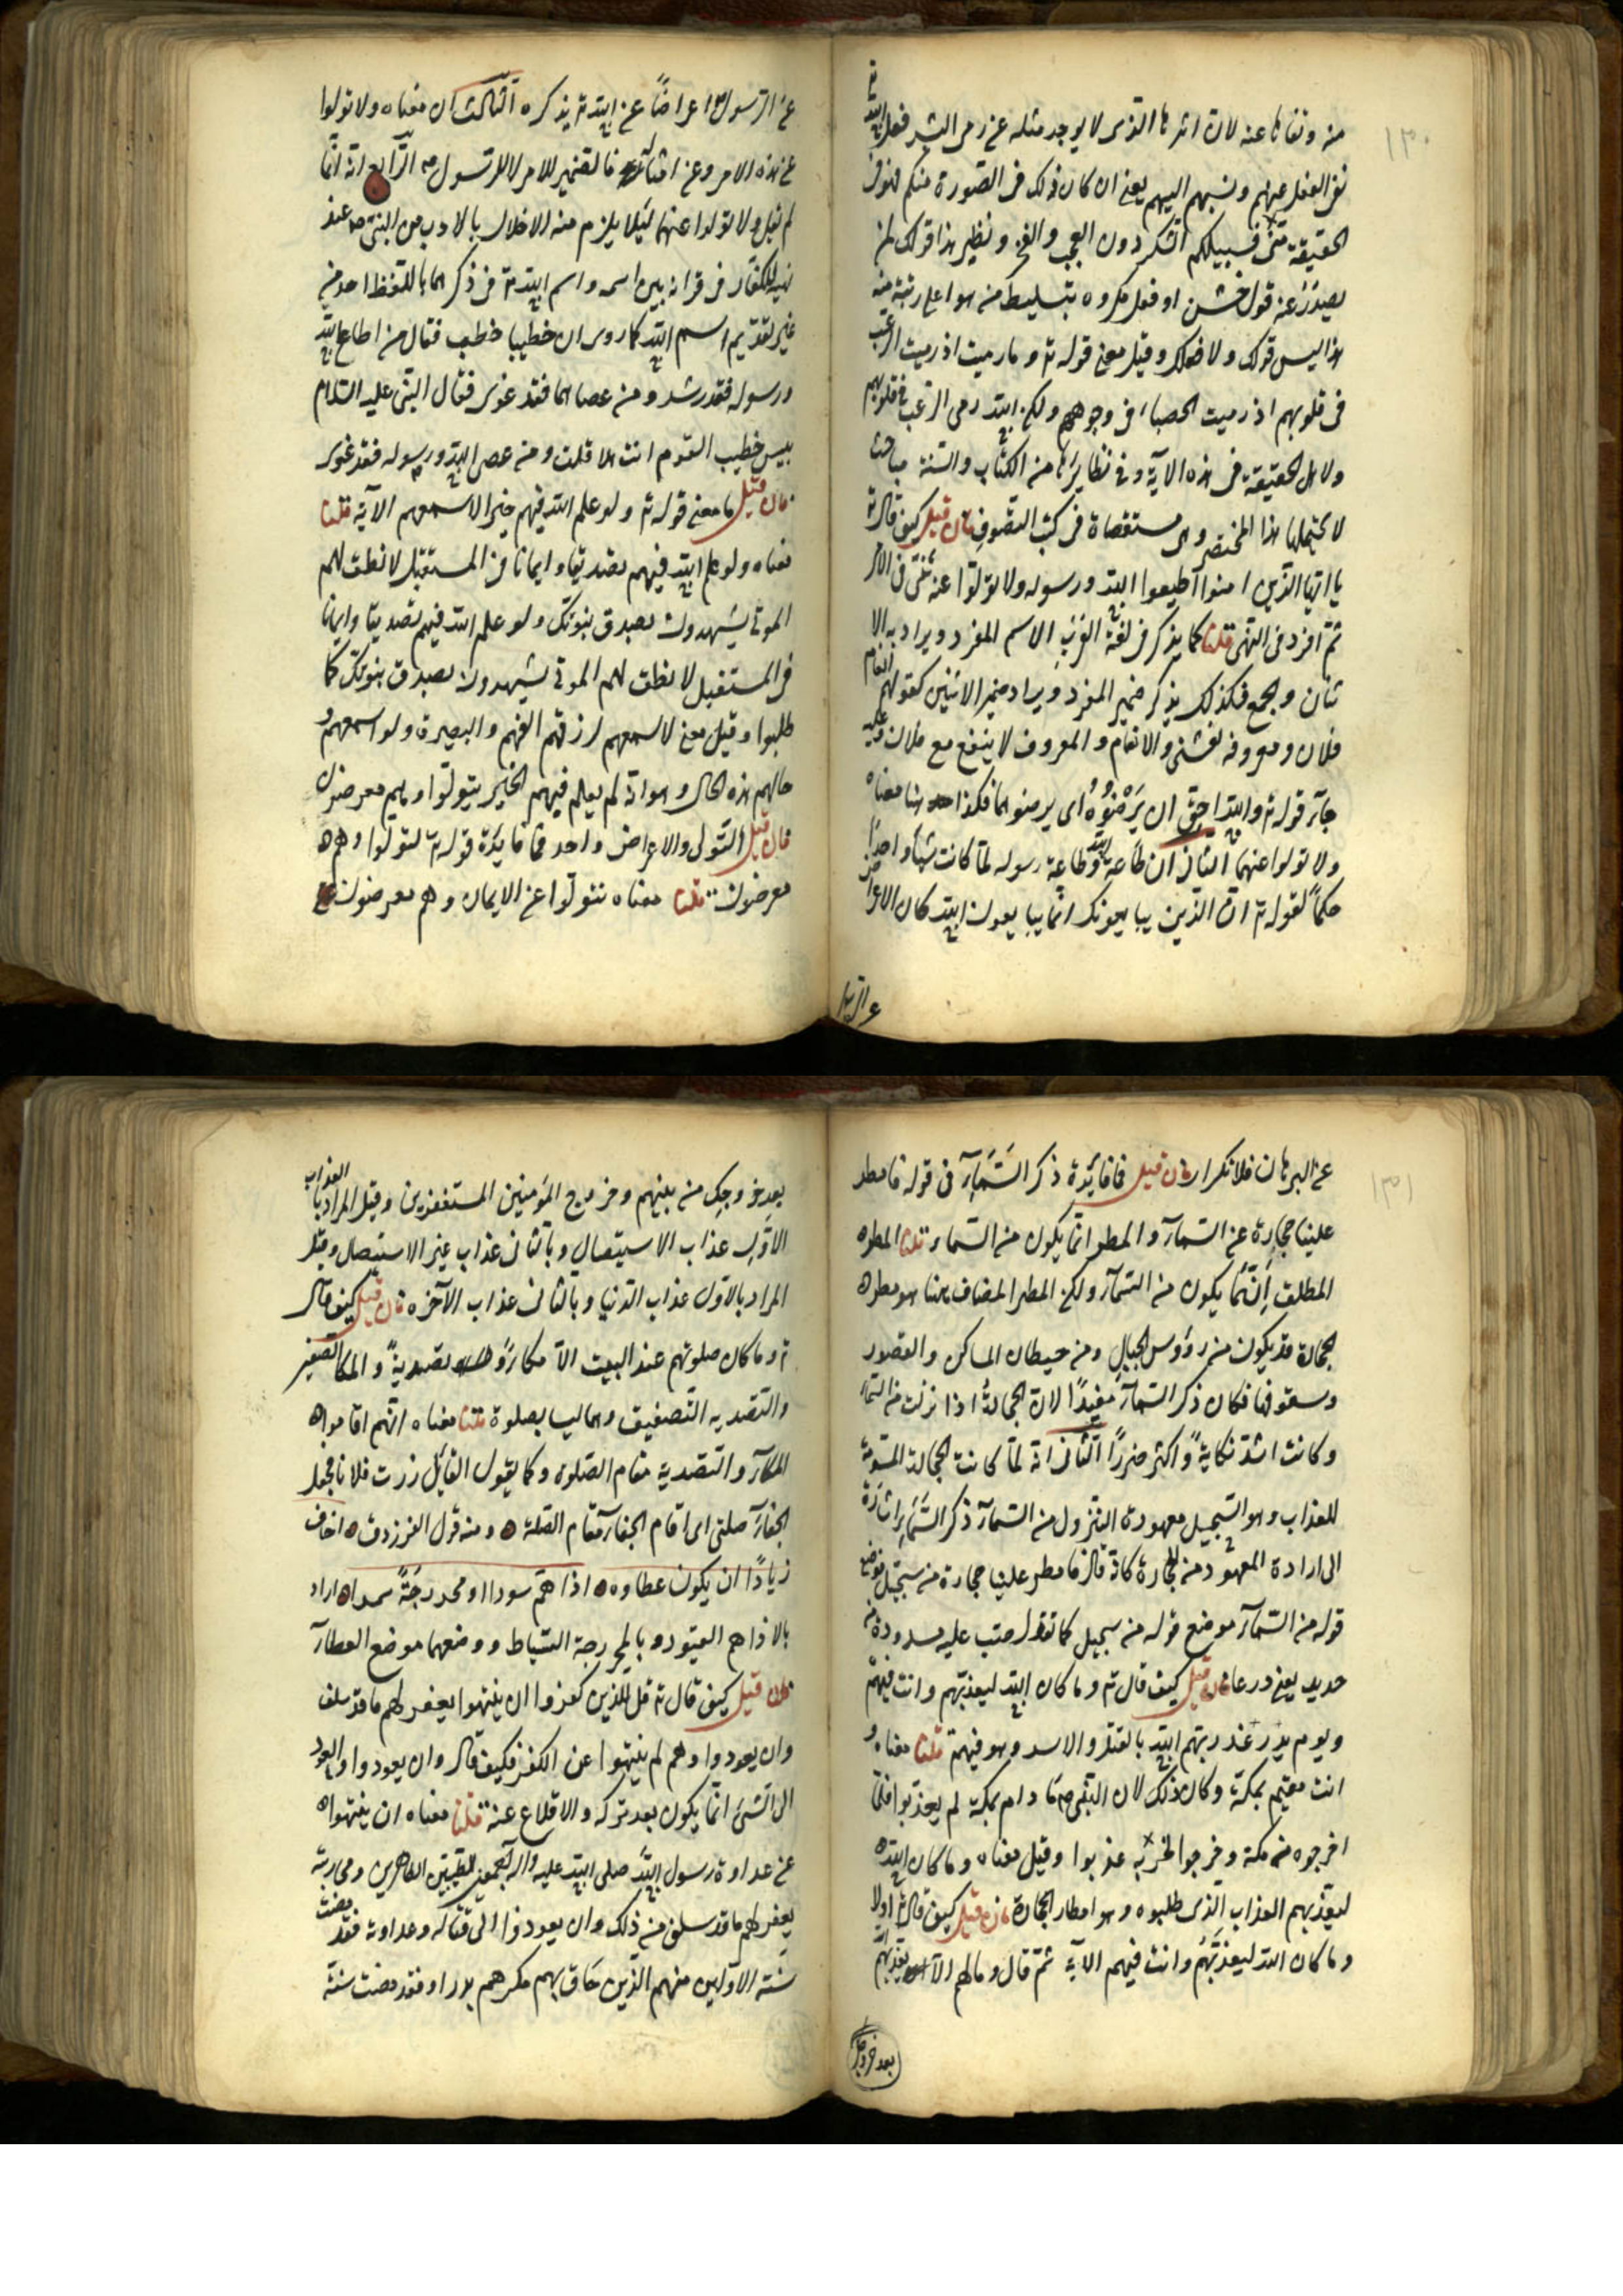 ١٣٠
منه ونفاها عنه لان اثرها الذى لا يوجد مثله عن رمى البشر فعل الله تع
نفى الفعل عنهم ونسبهم اليهم يعنى ان كان ذلك فى الصورة منكم فهو فى
الحقيقة منى فسبيلكم الشكر دون العجب والفخر ونظير هذا قولك لمن
يصدر عنه قول خشن او فعل مكروه بتسليط من هو اعلى رتبة منه
هذا ليس قولك ولا فعلك وقيل معنى قوله تع وما رميت اذ رميت الرعب
فى قلوبهم اذ رميت الحصباء فى وجوههم ولكن الله رمى الرعب فى قلوبهم
ولاهل الحقيقة فى هذه الآية وفى نظايرها من الكتاب والسنة مباحث
لا يحتملها هذا المختصر وهى مستقصاة فى كتب التصوف فان قيل كيف قال تع
يا ايها الذين امنوا اطيعوا الله ورسوله ولا تولوا عنه ثنى فى الامر
ثم افرد فى النهى قلنا كما يذكر فى لغة العرب الاسم المفرد ويراد به الا
ثنان والجمع فكذلك يذكر ضمير المفرد ويراد ضمير الاثنين كقولهم انعام
فلان ومعروفه يغشنى والانعام والمعروف لا ينفع مع فلان وعليه
جاء قوله تع والله احق ان يرضوه اى يرضوهما فكذا هنا معناه
ولا تولوا عنهما الثانى ان طاعة الله وطاعة رسوله لما كانت شيأ واحدا
حكماً لقوله تع ان الذين يبايعونك انما يبايعون الله كان الاعراض
عن الرسول
عن الرسول اعراضاً عن الله تع يذكره الثالث ان معناه ولا تولوا
عن هذه الامر وعن امثاله فالضمير للامر لا للرسول ص الرابع انه انما
لم يقل ولا تولوا عنهما لئلا يلزم منه الاخلال بالادب من النبى ص عند
نهيه للكفار فى قرانه بين اسمه واسم الله تع فى ذكرهما بلفظ احد من
غير تقديم اسم الله كما روى ان خطيبا خطب فقال من اطاع الله
ورسوله فقد رشد ومن عصاهما فقد غوى فقال النبى عليه السلام
بيس خطيب القوم انت هلا قلت ومن عصى الله ورسوله فقد غوى
فان قيل ما معنى قوله تع ولو علم الله فيهم خيرا لاسمعهم الآية قلنا
معناه ولو علم الله فيهم تصديقا وايمانا فى المستقبل لانطق لهم
الموتى يشهدون بصدق نبوتك ولو علم الله فيهم تصديقا وايمانا
فى المستقبل لانطق لهم الموتى يشهدون بصدق نبوتك كما
طلبوا وقيل معنى لاسمعهم لرزقهم الفهم والبصيرة ولو اسمعهم و
حالهم هذه الحال وهو انه لم يعلم فيهم الخير يتولوا وهم معرضون
فان قيل التولى والاعراض واحد فما فايدة قوله تع لتولوا وهم
معرضون قلنا معناه لتولوا عن الايمان وهم معرضون
١٣١
عن البرهان فلا تكرار فان قيل فما فائدة ذكر السماء فى قوله فامطر
علينا حجارة عن السماء والمطر انما يكون من السماء قلنا المطر
المطلق انما يكون من السماء ولكن المطر المضاف هنا هو مطر
الحجارة قد يكون من رؤوس الجبال ومن حيطان المساكن والقصور
وسقوفها فكان ذكر السماء مفيداً لان الحجارة اذا نزلت من السماء
وكانت اشد نكاية واكثر ضرراً الثانى انه لما كانت الحجارة المسومة
للعذاب وهو السجيل معهودة النزول من السماء ذكر السماء اشارة
الى ارادة المعهود من الحجارة كانه قال فامطر علينا حجارة من سجيل فوضع
قوله من السماء موضع قوله من سجيل كما تقول صب عليه مسرودة من
حديد يعنى درعا فان قيل كيف قال تع وما كان الله ليعذبهم وانت فيهم
ويوم بدر عذبهم الله بالقتل والاسر وهو فيهم قلنا معناه و
انت مقيم بمكة وكان ذلك لان النبى ص ما دام بمكة لم يعذبوا فلما
اخرجوه من مكة وخرجوا لحربه عذبوا وقيل معناه وما كان الله
ليعذبهم العذاب الذى طلبوه وهو امطار الحجارة فان قيل كيف قال اولا
وما كان الله ليعذبهم وانت فيهم الآية ثم قال وما لهم الا يعذبهم الله
بعد خروجك
بعد خروجك من بينهم وخروج المؤمنين المستغفرين وقيل المراد بالعذاب
الاول عذاب الاستيصال وبالثانى عذاب غير الاستيصال وقيل
المراد بالاول عذاب الدنيا وبالثانى عذاب الآخرة فان قيل كيف قال
تع وما كان صلوتهم عند البيت الا مكاء وتصدية والمكا الصفير
والتصديه التصفيق وهما ليسا بصلوة قلنا معناه انهم اقاموا
المكاء والتصدية مقام الصلوة وكما يقول القايل زرت فلانا فجعل
الجفاء صلتى اى اقام الجفاء مقام الصلة ومنه قول الفرزدق اخاف
زياداً ان يكون عطاوه اداهم سودا او محدرجة سمرا اراد
بالاداهم القيود وبالمحدرجة السياط ووضعهما موضع العطاء
فان قيل كيف قال تع قل للذين كفروا ان ينتهوا يغفر لهم ما قد سلف
وان يعودوا وهم لم ينتهوا عن الكفر فكيف قال وان يعودوا والعود
الى الشئ انما يكون بعد تركه والاقلاع عنه قلنا معناه ان ينتهوا
عن عداوة رسول الله صلى الله عليه واله اجمعين الطيبين الطاهرين ومحاربته
يغفر لهم ما قد سلف من ذلك وان يعودوا الى قتاله وعداوته فقد مضت
سنة الاولين منهم الذين حاق بهم مكرهم ببدر او فقد مضت سنة